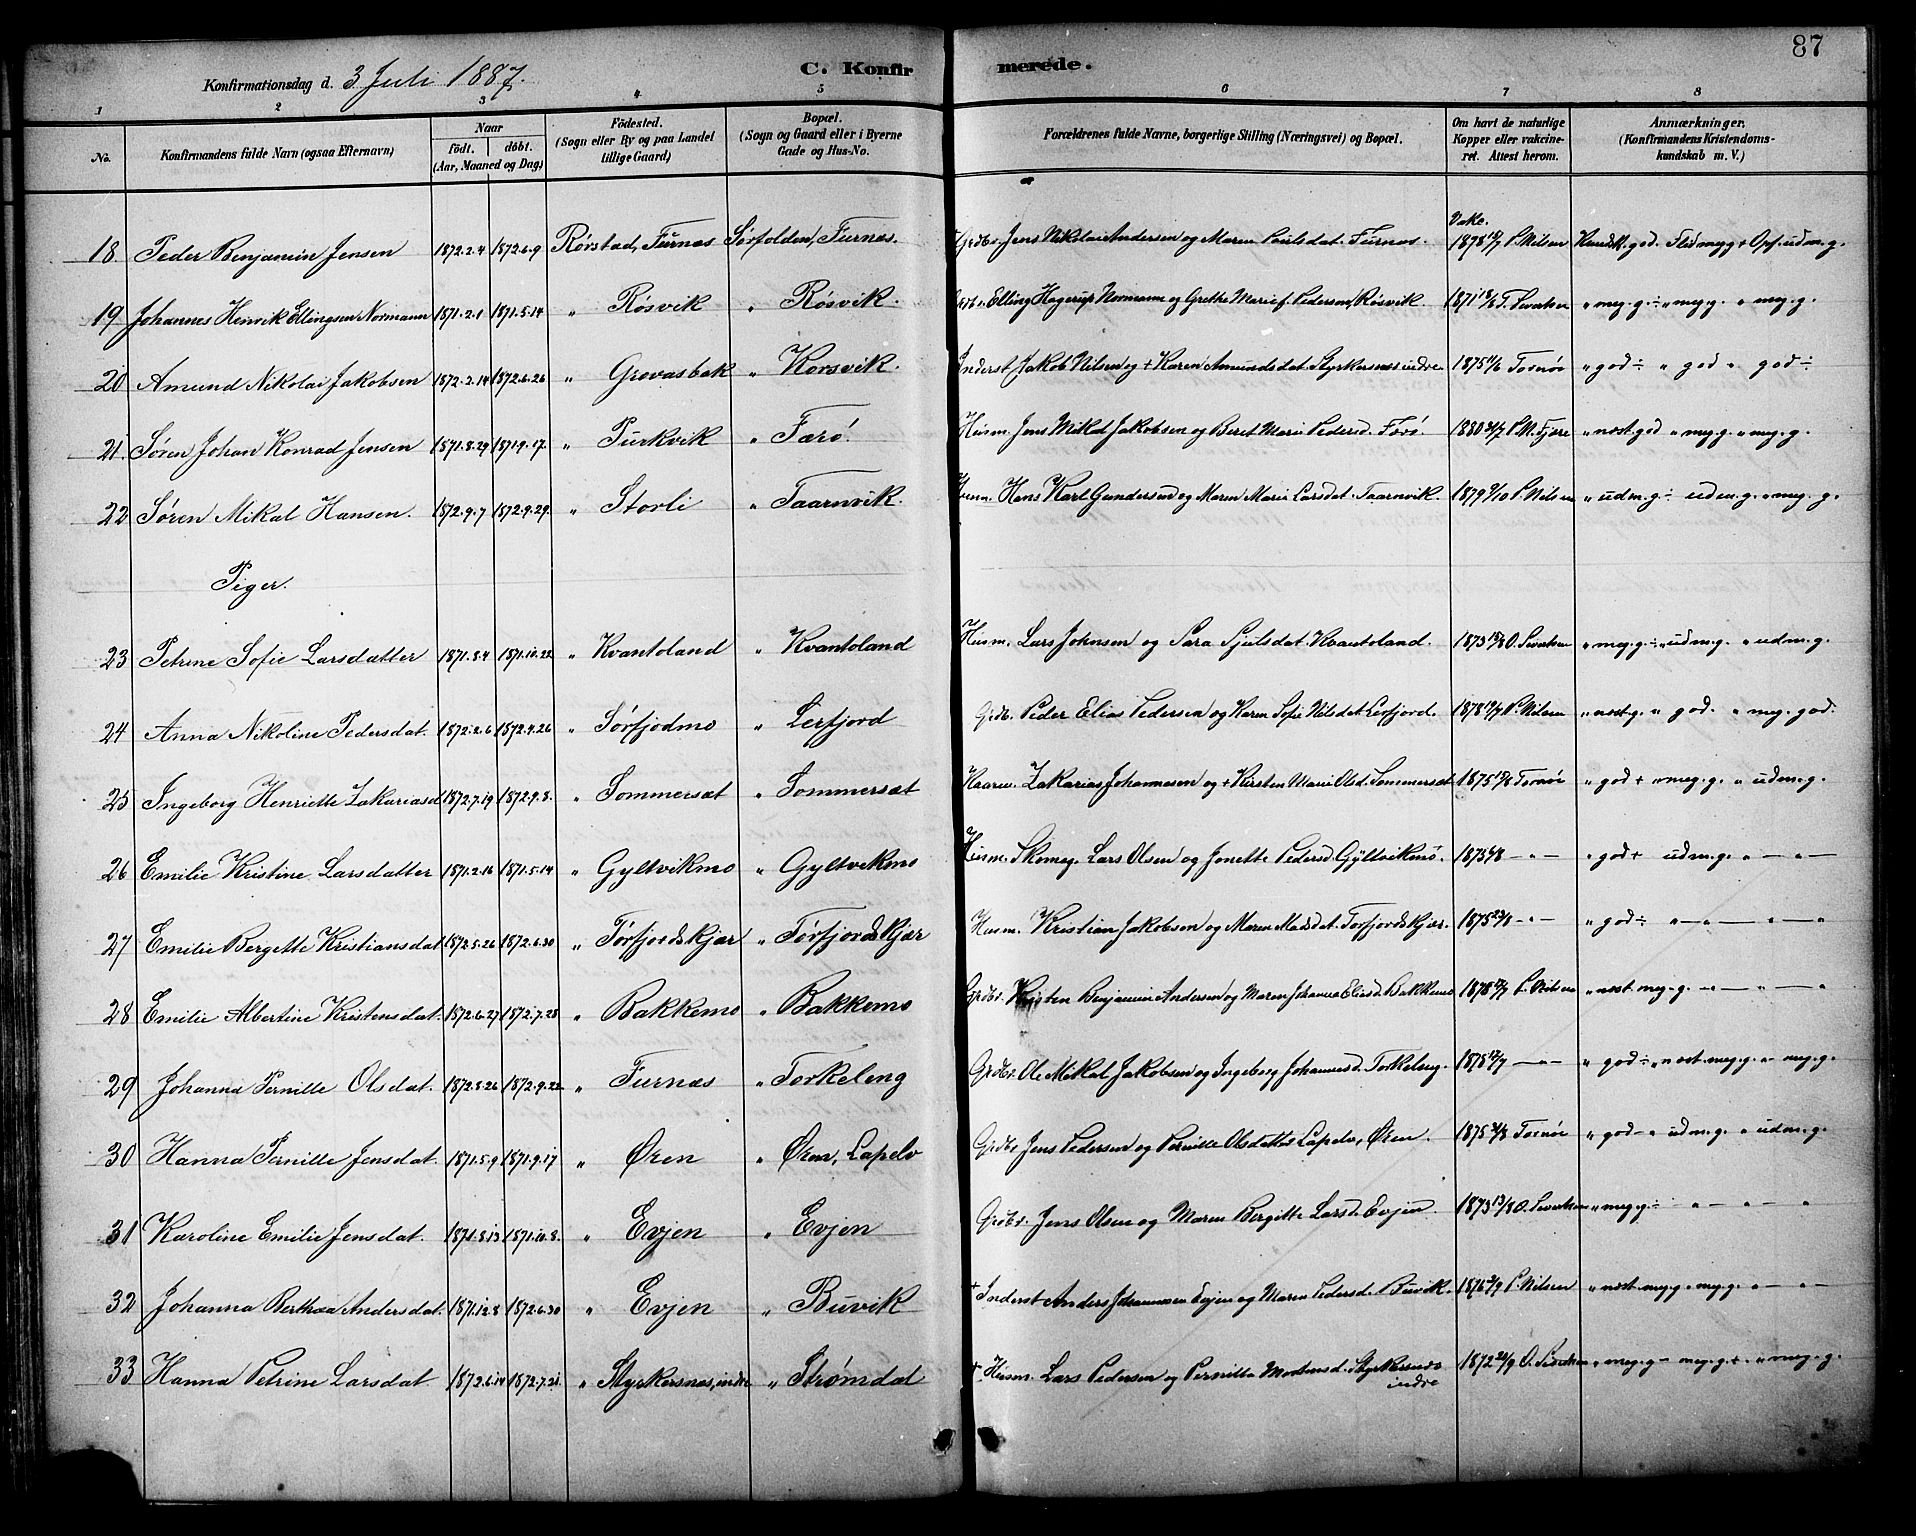 87
Konfirmationsdag d. 3 Juli 1887.
C. Konfirmerede.
1 2 3 4 5 6 7 8
No.
Konfirmandens fulde Navn (ogsaa Efternavn)
Naar
födt. döbt.
(Aar, Maaned og Dag)
Födested.
(Sogn eller By og paa Landet
tillige Gaard)
Bopæl.
(Sogn og Gaard eller i Byerne
Gade og Hus-No.
Forældrenes fulde Navne, borgerlige Stilling (Næringsvei) og Bopæl.
Om havt de naturlige
Kopper eller vakcine-
ret. Attest herom.
Anmærkninger,
(Konfirmandens Kristendoms-
kundskab m. V.)
Vakc.
18. Peder Benjamin Jensen 1872.2.4 1872.6.9 Rørstad, Furnæs Sørfolden, Furnæs. Grdbr. Jens Nikolai Andersen og Maren Poulsdat. Furnæs. 1878 P. Nilsen Kundsk. god. Flid meg g + Opf. udm. g.
19 Johannes Henrik Ellingsen Normann 1871.2.1 1871.5.14 " Røsvik " Røsvik. Grdbr. Elling Hagerup Normann og Grethe Marie f. Pedersen, Røsvik 1871 " meg. g ÷ " meg. g. " meg. g.
20 Amund Nikolai Jakobsen 1872.2.14 1872.6.26 " Grovasbak " Korsvik. Inderst Jakob Nilsen og + Karen Amundsdat. Styrkersnes indre 1875 11/6 Tornøe " god ÷ " god " god ÷
21. Søren Johan Konrad Jensen 1871.8.29 1871.9.17. " Purkvik " Færø. Husm. Jens Mikal Jakobsen og Beret Marie Pedersd. Færø 1880 P. M. Fjære " næst. god " meg. g. " meg. g.
22 Søren Mikal Hansen. 1872.9.7 1872.9.29. " Storli " Taarnvik. Husm. Hans Karl Gundersen og Maren Marie Larsdat. Taarnvik. 1879 9/10 P. Nilsen " udm. g ÷ udm. g. " meg. g.
Piger.
23 Petrine Sofie Larsdatter 1871.8.4 1871.10.22 " Kvantoland " Kvantoland Husm. Lars Johnsen og Sara Sjulsdat. Kvantoland. 1873 13/8 O. Sivertsen " meg. g. ÷ " udm. g. " udm. g.
24 Anna Nikoline Pedersdat. 1872.2.6 1872.4.26 " Sørfjodmo " Lerfjord Grdb. Peder Elias Pedersen og Karen Sofie Nilsdat. Lerfjord. 1878 P. Nilsen " næst. g. " god. " meg. god.
25 Ingeborg Henriette Zakariasd 1872.7.19 1872.9.8. " Sommersæt " Sommersæt Zakarias Johannesen og + Kirsten Marie Olsd. Sommersæt 1875 Tornøe " god + " meg. g. " udm. g.
26 Emilie Kristine Larsdatter 1871.2.16 1871.5.14 " Gyltvikmo " Gyltvikmo Husm. Skomag. Lars Olsen og Jonette Pedersd. Gyltvikmo. 1875 — " — " god + udm. g. " — " —
27 Emilie Bergette Kristiansdat 1872.5.26 1872.6.30 " Tørfjordskjær " Tørfjordskjær Husm. Kristian Jakobsen og Maren Madsdat. Torfjordskjær. 1875 23/8 — " — " god ÷ " — " — " — "
28 Emilie Albertine Kristensdat. 1872.6.27 1872.7.28 " Bakkemo " Bakkemo Grdbr. Kristen Benjamin Andersen og Maren Johanna Eliasd. Bakkemo 1878 P. Nilsen " næst. meg. g. — " — " — "
29 Johanna Pernille Olsdat. 1872.8.26 1872.9.22 " Furnæs " Torkeleng Grdbr. Ole Mikal Jakobsen og Ingeborg Johannesd. Torkeleng. 1878 17/7 — " — " god ÷ " næst. meg. g. " meg. g.
30 Hanna Pernille Jensdat. 1871.5.9 1871.9.17 " Øren " Øren, Lapelv Grdbr. Jens Pedersen og Pernille Olsdatter Lapelv, Øren. 1875 Tornøe " god — " udm. g. " udm. g.
31 Karoline Emilie Jensdat. 1871.8.13 1871.10.8. " Evjen " Evjen Grdbr. Jens Olsen og Maren Bergitte Larsd. Evjen 1873 13/8 O. Sivertsen " meg. g ÷ " — " — "
32 Johanna Berthea Andersdat. 1871.12.8 1872.6.30 " Evjen " Buvik + Inderst Anders Johannesen Evjen og Maren Pedersd. Buvik. 1876 P. Nilsen " næst. meg. g " meg. g. " — " —
33 Hanna Petrine Larsdat 1872.6.14 1872.7.21. " Styrkersnæs, indre " Strømdal + Husm. Lars Pedersen og Pernille Mortensd. Styrkersnæs
indre 1872 O. Sivertsen " meg. g — meg. g + . " meg. g.